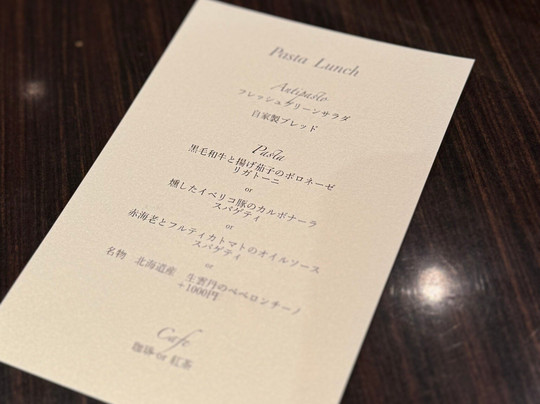 Pasta Lunch
Antipasto
フレッシュグリーンサラダ
自家製ブレッド
Pasta
黒毛和牛と揚げ茄子のボロネーゼ
リガトーニ
or
燻したイベリコ豚のカルボナーラ
スパゲティ
or
赤海老とフルティカトマトのオイルソース
スパゲティ
or
名物 北海道産 生雲丹のペペロンチーノ
+1000円
Cafe
珈琲 or 紅茶